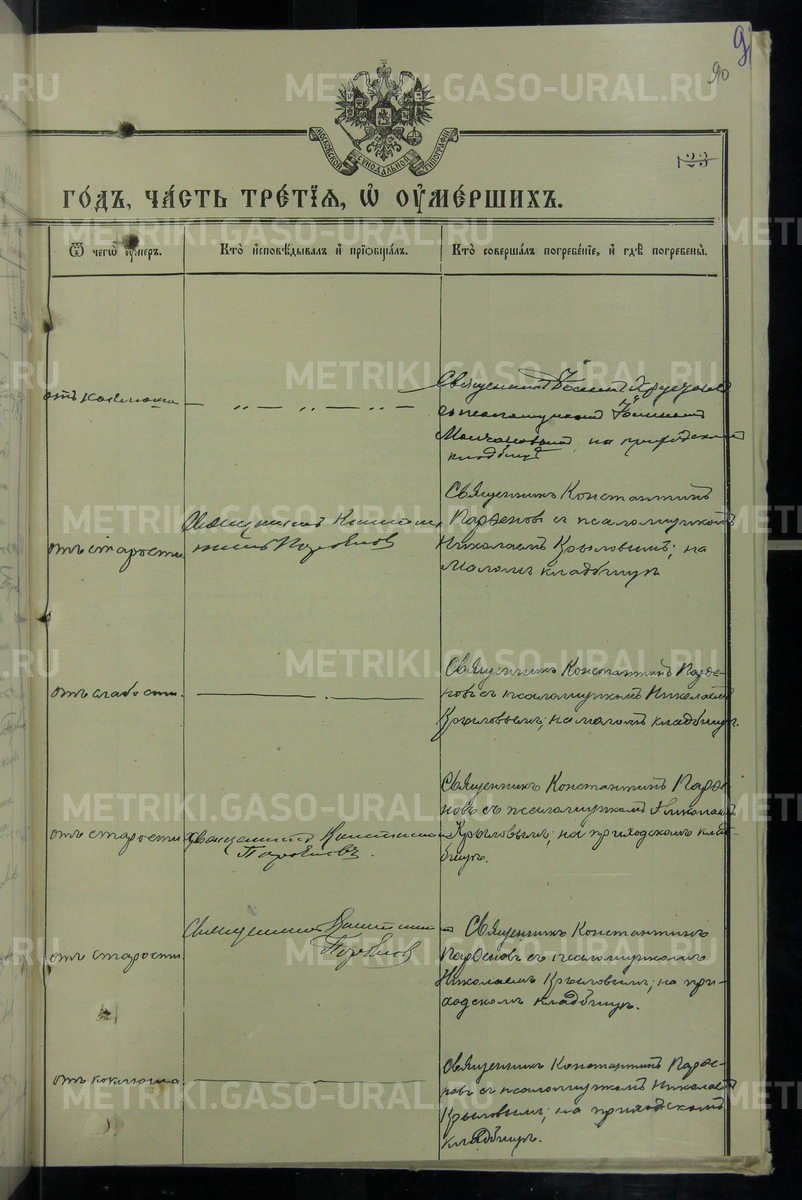 90
133
МОСКОВСКОЙ СѴНОДАЛЬНОЙ ТИПОГРАФІИ
ГО́ДЪ, ЧА́СТЬ ТРЕ́ТЇѦ, Ѡ҆ ОУ҆МЕ́РШИХЪ.
Ѿ чегѡ̀ оу҆́меръ.
Кто̀ и҆сповѣ́дывалъ и҆ прїѡбща́лъ.
Кто̀ соверша́лъ погребе́нїе, и҆ гдѣ̀ погребены̀.
отъ коклюша
— „ — „ — „ —
Священникъ
съ псаломщикомъ
на приходскомъ
кладбищѣ
отъ старости.
Священникъ Констан
тинъ Парѳенов
Священникъ Константинъ
Парѳенов съ псаломщикомъ
Николаемъ Крыловымъ; на
Малом кладбищѣ
отъ слабости.
Священникъ Константинъ Парѳе-
новъ съ псаломщикомъ Николаемъ
Крыловымъ; на малом кладбищѣ.
отъ старости
Священникъ Константин
Парѳеновъ.
Священникъ Константинъ Парѳе
новъ съ псаломщикомъ Николаемъ
Крыловымъ; на приходскомъ клад-
бищѣ.
отъ старости.
Священникъ Константин
Парѳенов
Священникъ Константинъ
Парѳеновъ съ псаломщикомъ
Николаемъ Крыловымъ; на при-
ходскомъ кладбищѣ.
отъ коклюша.
Священникъ Константинъ Парѳе-
новъ съ псаломщикомъ Николаемъ
Крыловымъ; на приходскомъ
кладбищѣ.
METRIKI.GASO-URAL.RU